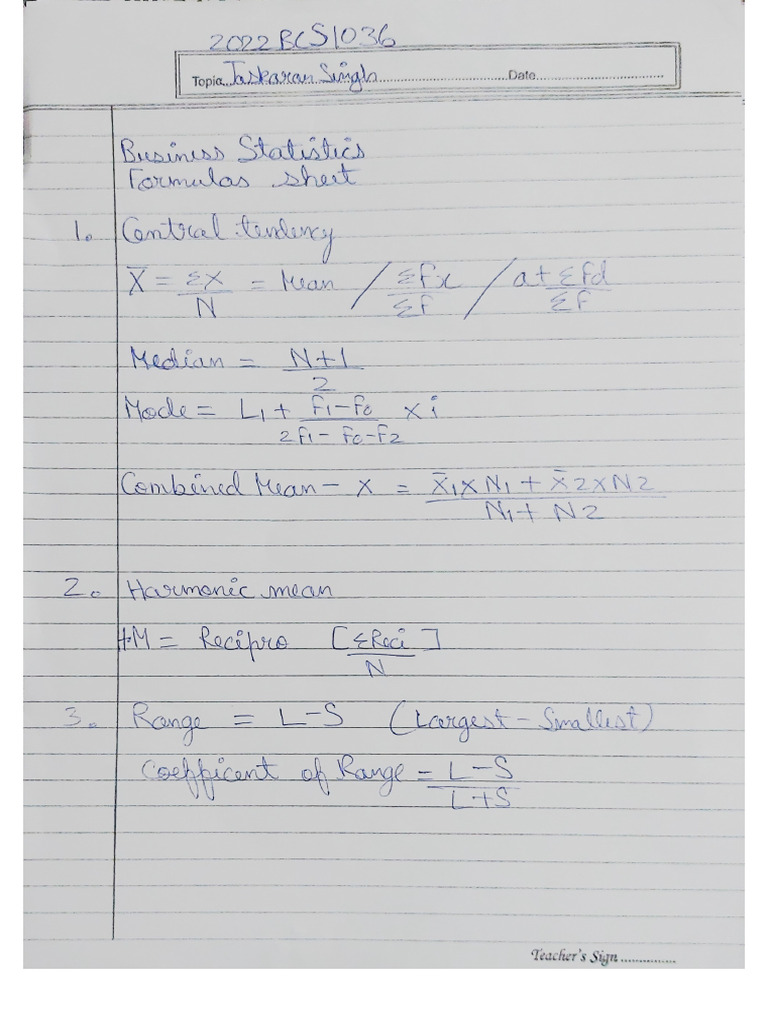 2022BCS1036
Topic Jaskaran Singh Date
Business Statistics
Formulas sheet
1. Central tendency
X̄ = ΣX/N = Mean / Σfx/Σf / a+Σfd/Σf
Median = N+1/2
Mode = L1 + f1-f0/2f1-f0-f2 x i
Combined Mean - X = X̄1xN1 + X̄2xN2/N1+N2
2. Harmonic mean
HM = Recipro [ΣReci/N]
3. Range = L-S (Largest - Smallest)
Coefficent of Range = L-S/L+S
Teacher's Sign